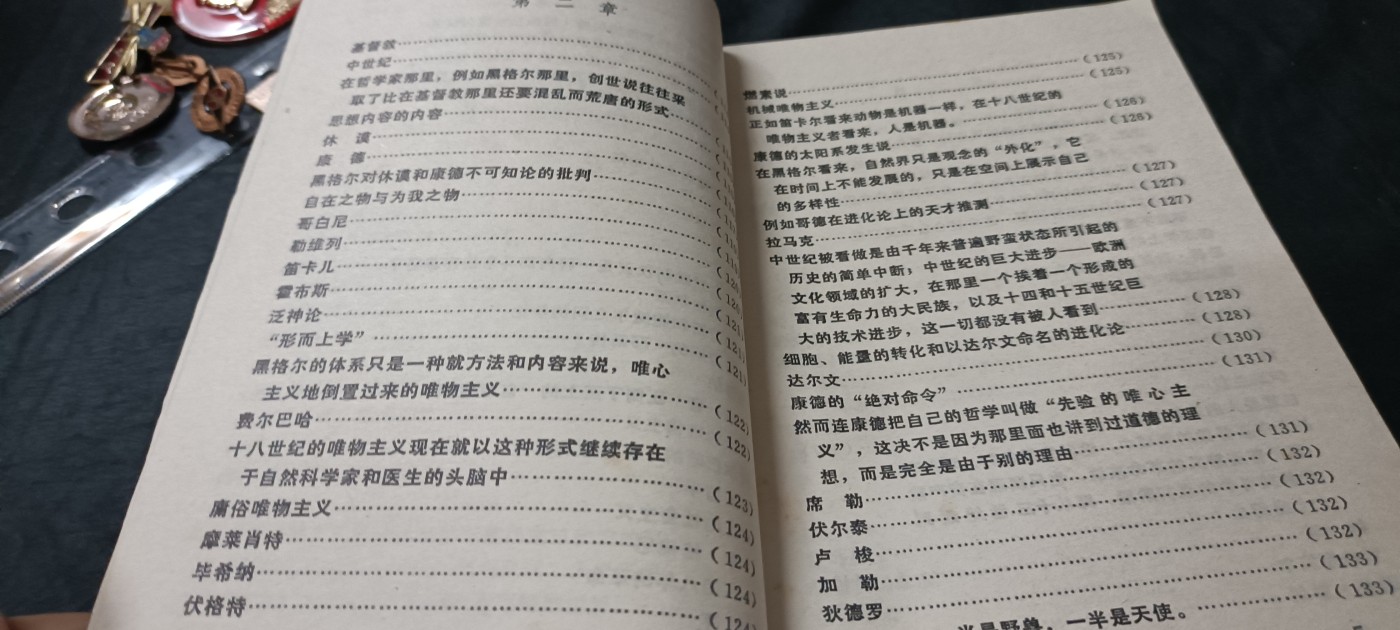 第二章
基督教
中世纪
在哲学家那里，例如黑格尔那里，创世说往往采
取了比在基督教那里还要混乱而荒唐的形式
思想内容的内容
休 谟
康 德
黑格尔对休谟和康德不可知论的批判
自在之物与为我之物
哥白尼
勒维列
笛卡儿
霍布斯
泛神论
“形而上学”
黑格尔的体系只是一种就方法和内容来说，唯心
主义地倒置过来的唯物主义……（122）
费尔巴哈……（122）
十八世纪的唯物主义现在就以这种形式继续存在
于自然科学家和医生的头脑中……（123）
庸俗唯物主义……（124）
摩莱肖特……（124）
毕希纳……（124）
伏格特……（124）
燃素说……（125）
机械唯物主义……（125）
正如笛卡尔看来动物是机器一样，在十八世纪的
唯物主义者看来，人是机器。……（126）
康德的太阳系发生说……（126）
在黑格尔看来，自然界只是观念的“外化”，它
在时间上不能发展的，只是在空间上展示自己
的多样性……（127）
例如哥德在进化论上的天才推测……（127）
拉马克……（127）
中世纪被看做是由千年来普遍野蛮状态所引起的
历史的简单中断；中世纪的巨大进步——欧洲
文化领域的扩大，在那里一个挨着一个形成的
富有生命力的大民族，以及十四和十五世纪巨
大的技术进步，这一切都没有被人看到……（128）
细胞、能量的转化和以达尔文命名的进化论……（128）
达尔文……（130）
康德的“绝对命令”……（131）
然而连康德把自己的哲学叫做“先验的唯心主
义”，这决不是因为那里面也讲到过道德的理
想，而是完全是由于别的理由……（131）
席 勒……（132）
伏尔泰……（132）
卢 梭……（132）
加 勒……（132）
狄德罗……（133）
一半是天使。……（133）